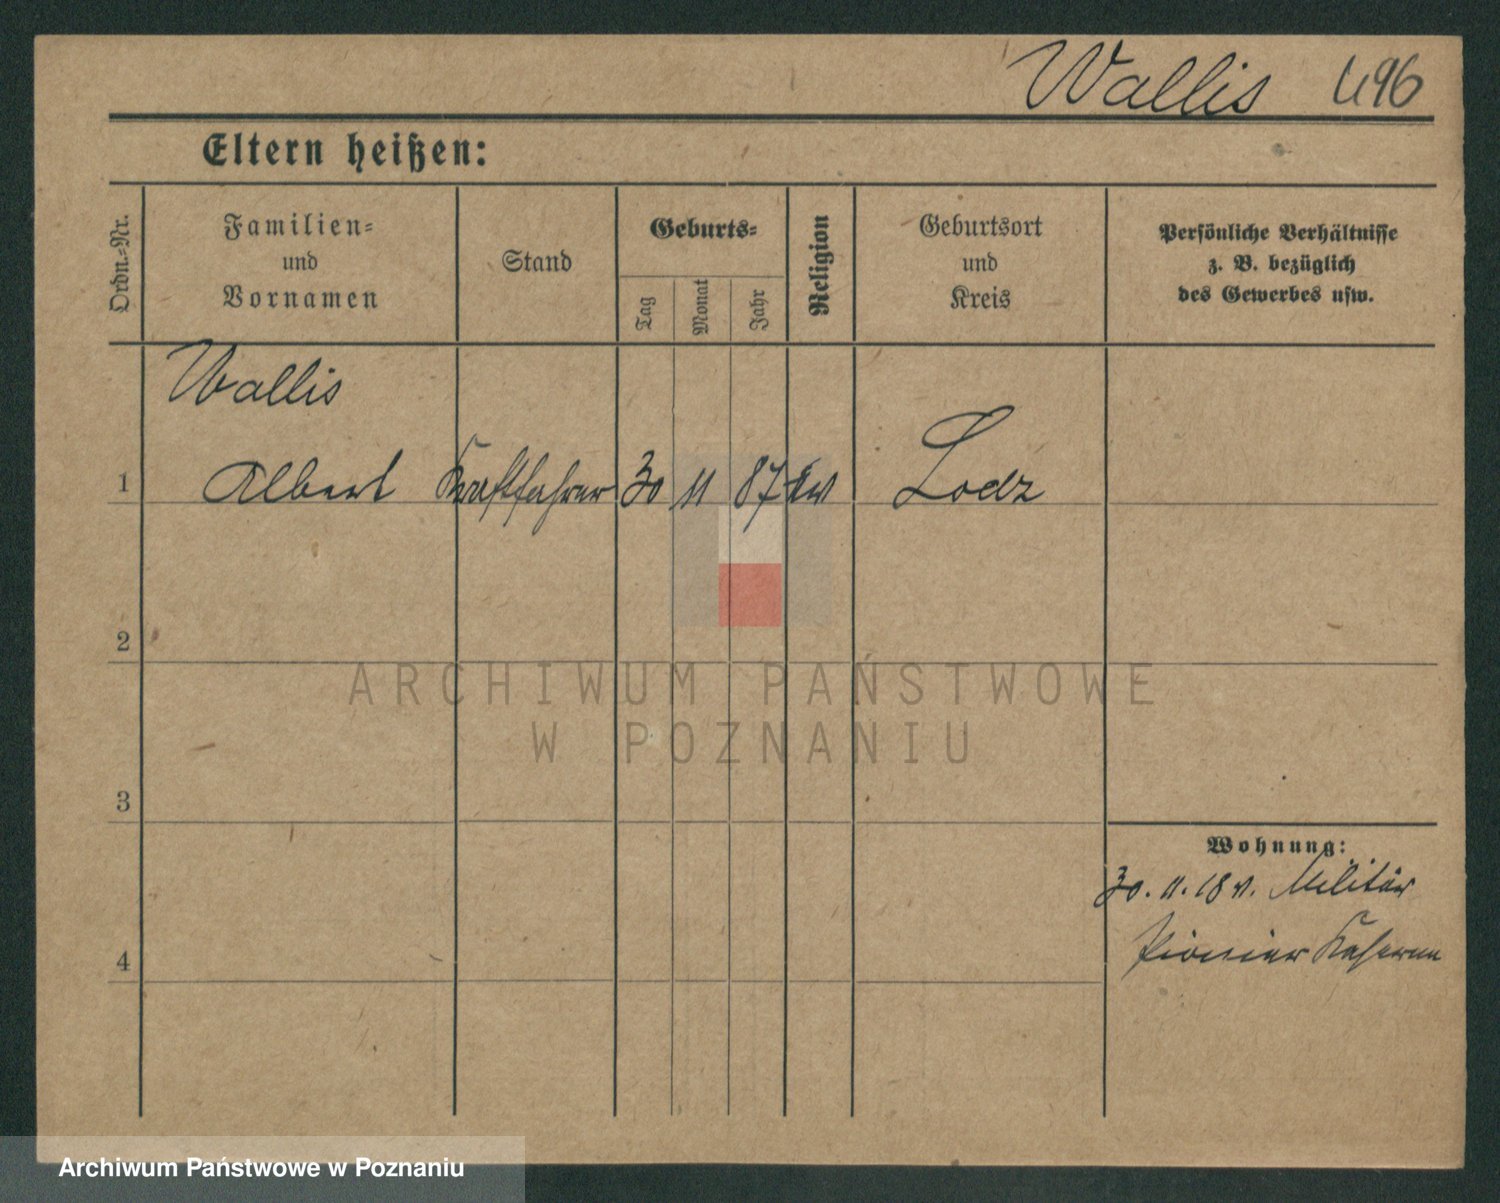 Wallis 496
Eltern heißen:
Ordn.=Nr.
Familien=
und
Vornamen
Stand
Geburts=
Tag
Monat
Jahr
Religion
Geburtsort
und
Kreis
Persönliche Verhältnisse
z. B. bezüglich
des Gewerbes usw.
Wallis
1 Albert Kraftfahrer 30 11 87 ev Lodz
2
ARCHIWUM PAŃSTWOWE
W POZNANIU
3
Wohnung:
30. 11. 18 v. Militär
Pionier Kaserne
4
Archiwum Państwowe w Poznaniu